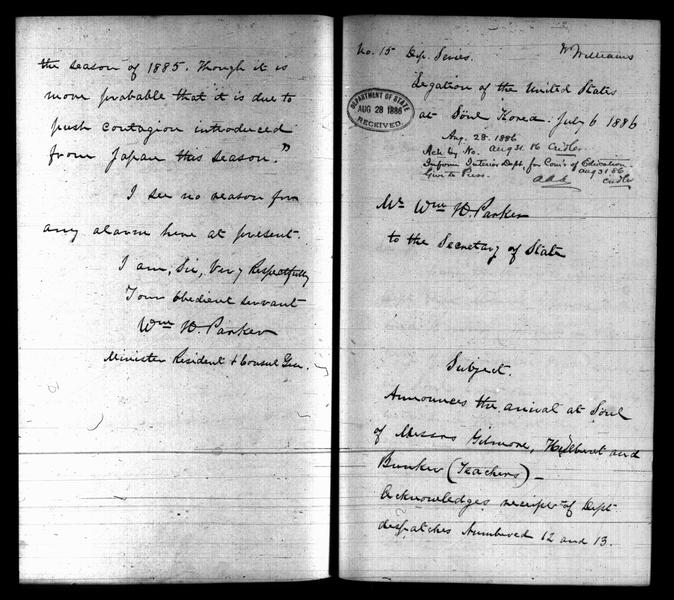 the season of 1885. Though it is
more probable that it is due to
fresh contagion introduced
from Japan this season."
I see no reason for
any alarm here at present.
I am, Sir, Very Respectfully
Your Obedient servant
Wm H. Parker
Minister Resident & Consul Gen.
No. 15 Dip. Series. W Williams
Legation of the United States
at Söul Korea. July 6 1886
DEPARTMENT OF STATE
AUG 28 1886
RECEIVED.
Aug. 28. 1886
Ack by No. Aug 31. 86
Inform Interior Dept. for Com'r of Education.
Aug 31 86
Give to Press.
Mr Wm H. Parker
to the Secretary of State
Subject.
Announces the arrival at Söul
of Messrs Gilmore, Hulbert and
Bunker (Teachers) –
Acknowledges receipt of Dept
despatches Numbered 12 and 13.